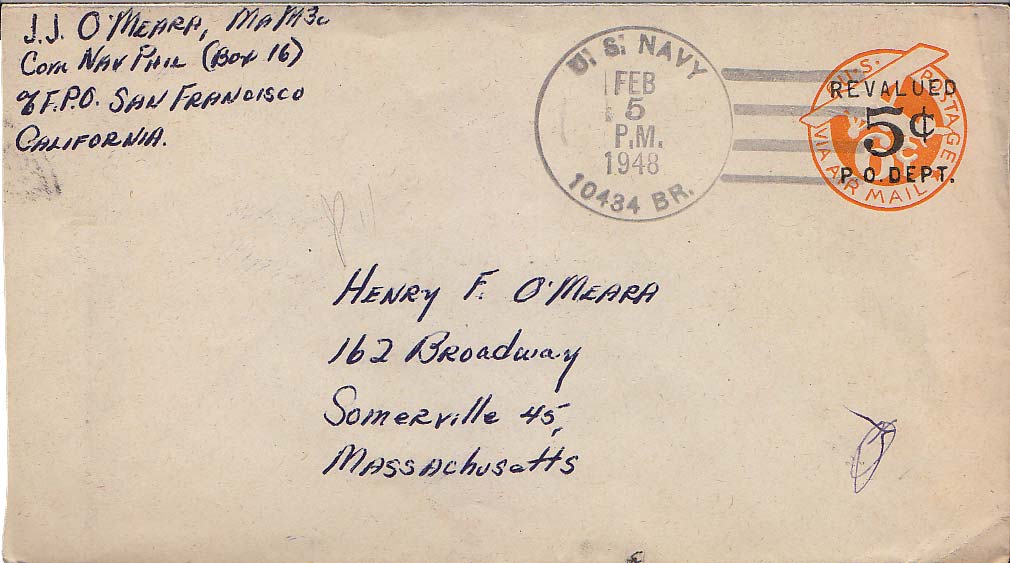 J.J. O'MEARA, MAM3c
Com NAV PHIL (BOX 16)
% F.P.O. SAN FRANCISCO
CALIFORNIA.
U.S. NAVY
FEB
5
P.M.
1948
10434 BR.
U.S. POSTAGE
VIA AIR MAIL
REVALUED
5¢
P.O. DEPT.
HENRY F. O'MEARA
162 Broadway
Somerville 45,
MASSAchusetts